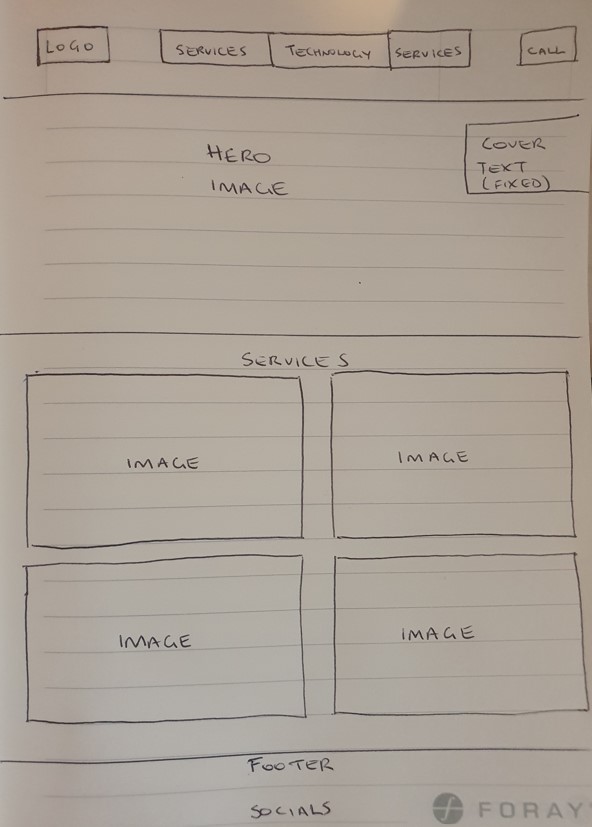 LOGO
SERVICES TECHNOLOGY SERVICES
CALL
HERO
IMAGE
COVER
TEXT
(FIXED)
SERVICES
IMAGE
IMAGE
IMAGE
IMAGE
FOOTER
SOCIALS
FORAY